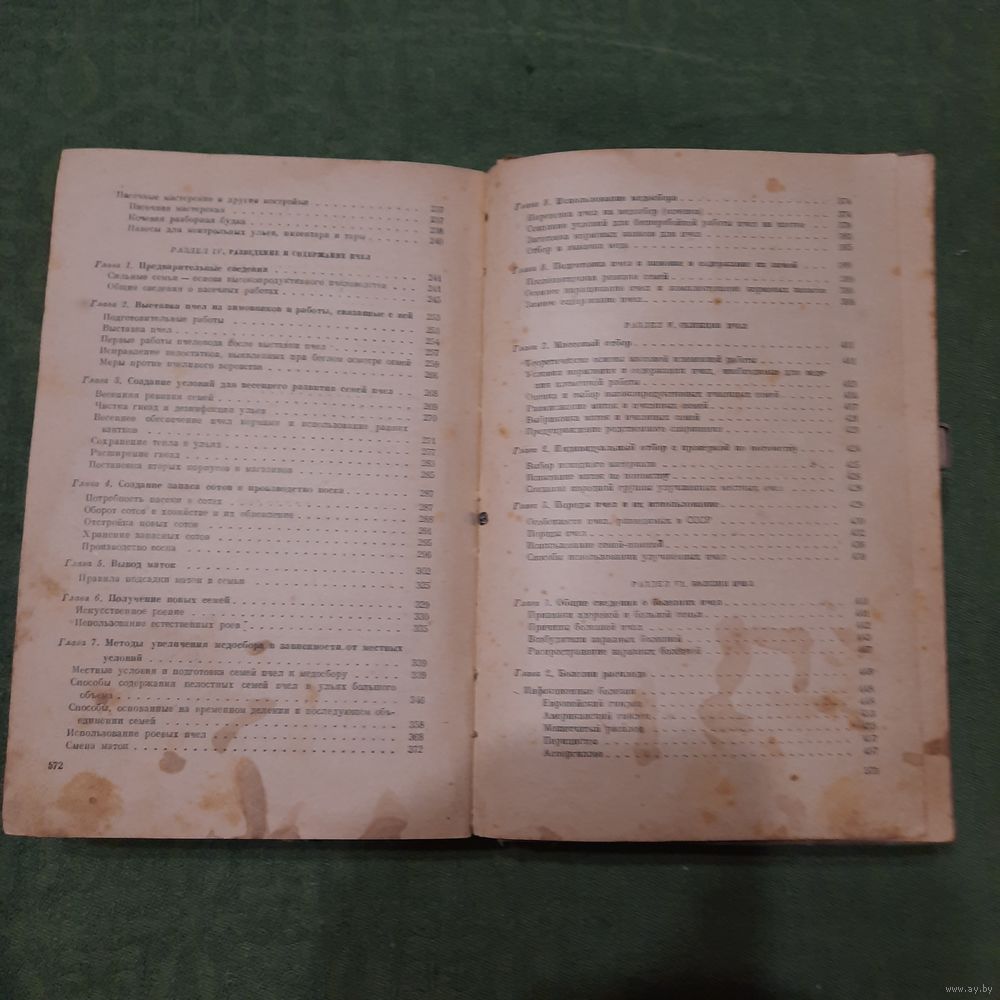 Пасечные мастерские и другие постройки
Пасечная мастерская . . . 237
Кочевая разборная будка . . . 238
Навесы для контрольных ульев, инвентаря и тары . . . 240
РАЗДЕЛ IV. РАЗВЕДЕНИЕ И СОДЕРЖАНИЕ ПЧЕЛ
Глава 1. Предварительные сведения . . . 241
Сильные семьи — основа высокопродуктивного пчеловодства . . . 241
Общие сведения о пасечных работах . . . 245
Глава 2. Выставка пчел из зимовников и работы, связанные с ней 253
Подготовительные работы . . . 253
Выставка пчел . . . 254
Первые работы пчеловода после выставки пчел . . . 257
Исправление недостатков, выявленных при беглом осмотре семей 259
Меры против пчелиного воровства . . . 266
Глава 3. Создание условий для весеннего развития семей пчел . . . 268
Весенняя ревизия семей . . . 269
Чистка гнезд и дезинфекция ульев . . . 270
Весеннее обеспечение пчел кормами и использование ранних
взятков . . . 271
Сохранение тепла в ульях . . . 277
Расширение гнезд . . . 283
Постановка вторых корпусов и магазинов . . . 285
Глава 4. Создание запаса сотов и производство воска . . . 287
Потребность пасеки в сотах . . . 287
Оборот сотов в хозяйстве и их обновление . . . 288
Отстройка новых сотов . . . 291
Хранение запасных сотов . . . 295
Производство воска . . . 296
Глава 5. Вывод маток . . . 302
Правила подсадки маток в семьи . . . 325
Глава 6. Получение новых семей . . . 329
Искусственное роение . . . 330
Использование естественных роев . . . 335
Глава 7. Методы увеличения медосбора в зависимости от местных
условий . . . 339
Местные условия и подготовка семей пчел к медосбору . . . 339
Способы содержания целостных семей пчел в ульях большого
объема . . . 346
Способы, основанные на временном делении и последующем объ-
единении семей . . . 358
Использование роевых пчел . . . 368
Смена маток . . . 372
572
Глава 8. Использование медосбора . . . 374
Перевозка пчел на медосбор (кочевка) . . . 374
Создание условий для бесперебойной работы пчел на взятке
Заготовка кормовых запасов для пчел
Отбор и выкачка меда
Глава 9. Подготовка пчел к зимовке и содержание их зимой
Сезонное наращивание пчел и комплектование кормовых запасов
Зимнее содержание пчел
РАЗДЕЛ V. СЕЛЕКЦИЯ ПЧЕЛ
Глава 1. Массовый отбор . . . 411
Теоретические основы массовой племенной работы . . . 411
Условия кормления и содержания пчел, необходимые для веде-
ния племенной работы
Оценка и выбор высокопродуктивных пчелиных семей
Размножение маток и пчелиных семей
Выбраковка маток и пчелиных семей
Предупреждение родственного спаривания
Глава 2. Индивидуальный отбор с проверкой по потомству
Выбор исходного материала . . . 425
Испытание маток по потомству
Создание породной группы улучшенных местных пчел
Глава 3. Породы пчел и их использование
Особенности пчел, разводимых в СССР
Породы пчел
Использование семей-помесей
Способы использования улучшенных пчел
РАЗДЕЛ VI. БОЛЕЗНИ ПЧЕЛ
Глава 1. Общие сведения о болезнях пчел . . . 441
Признаки здоровой и больной семьи . . . 441
Причины болезней пчел
Возбудители заразных болезней
Распространение заразных болезней
Глава 2. Болезни расплода
Инфекционные болезни
Европейский гнилец
Американский гнилец
Мешотчатый расплод
Перицистис
Аспергиллез . . . 457
573
www.ay.by